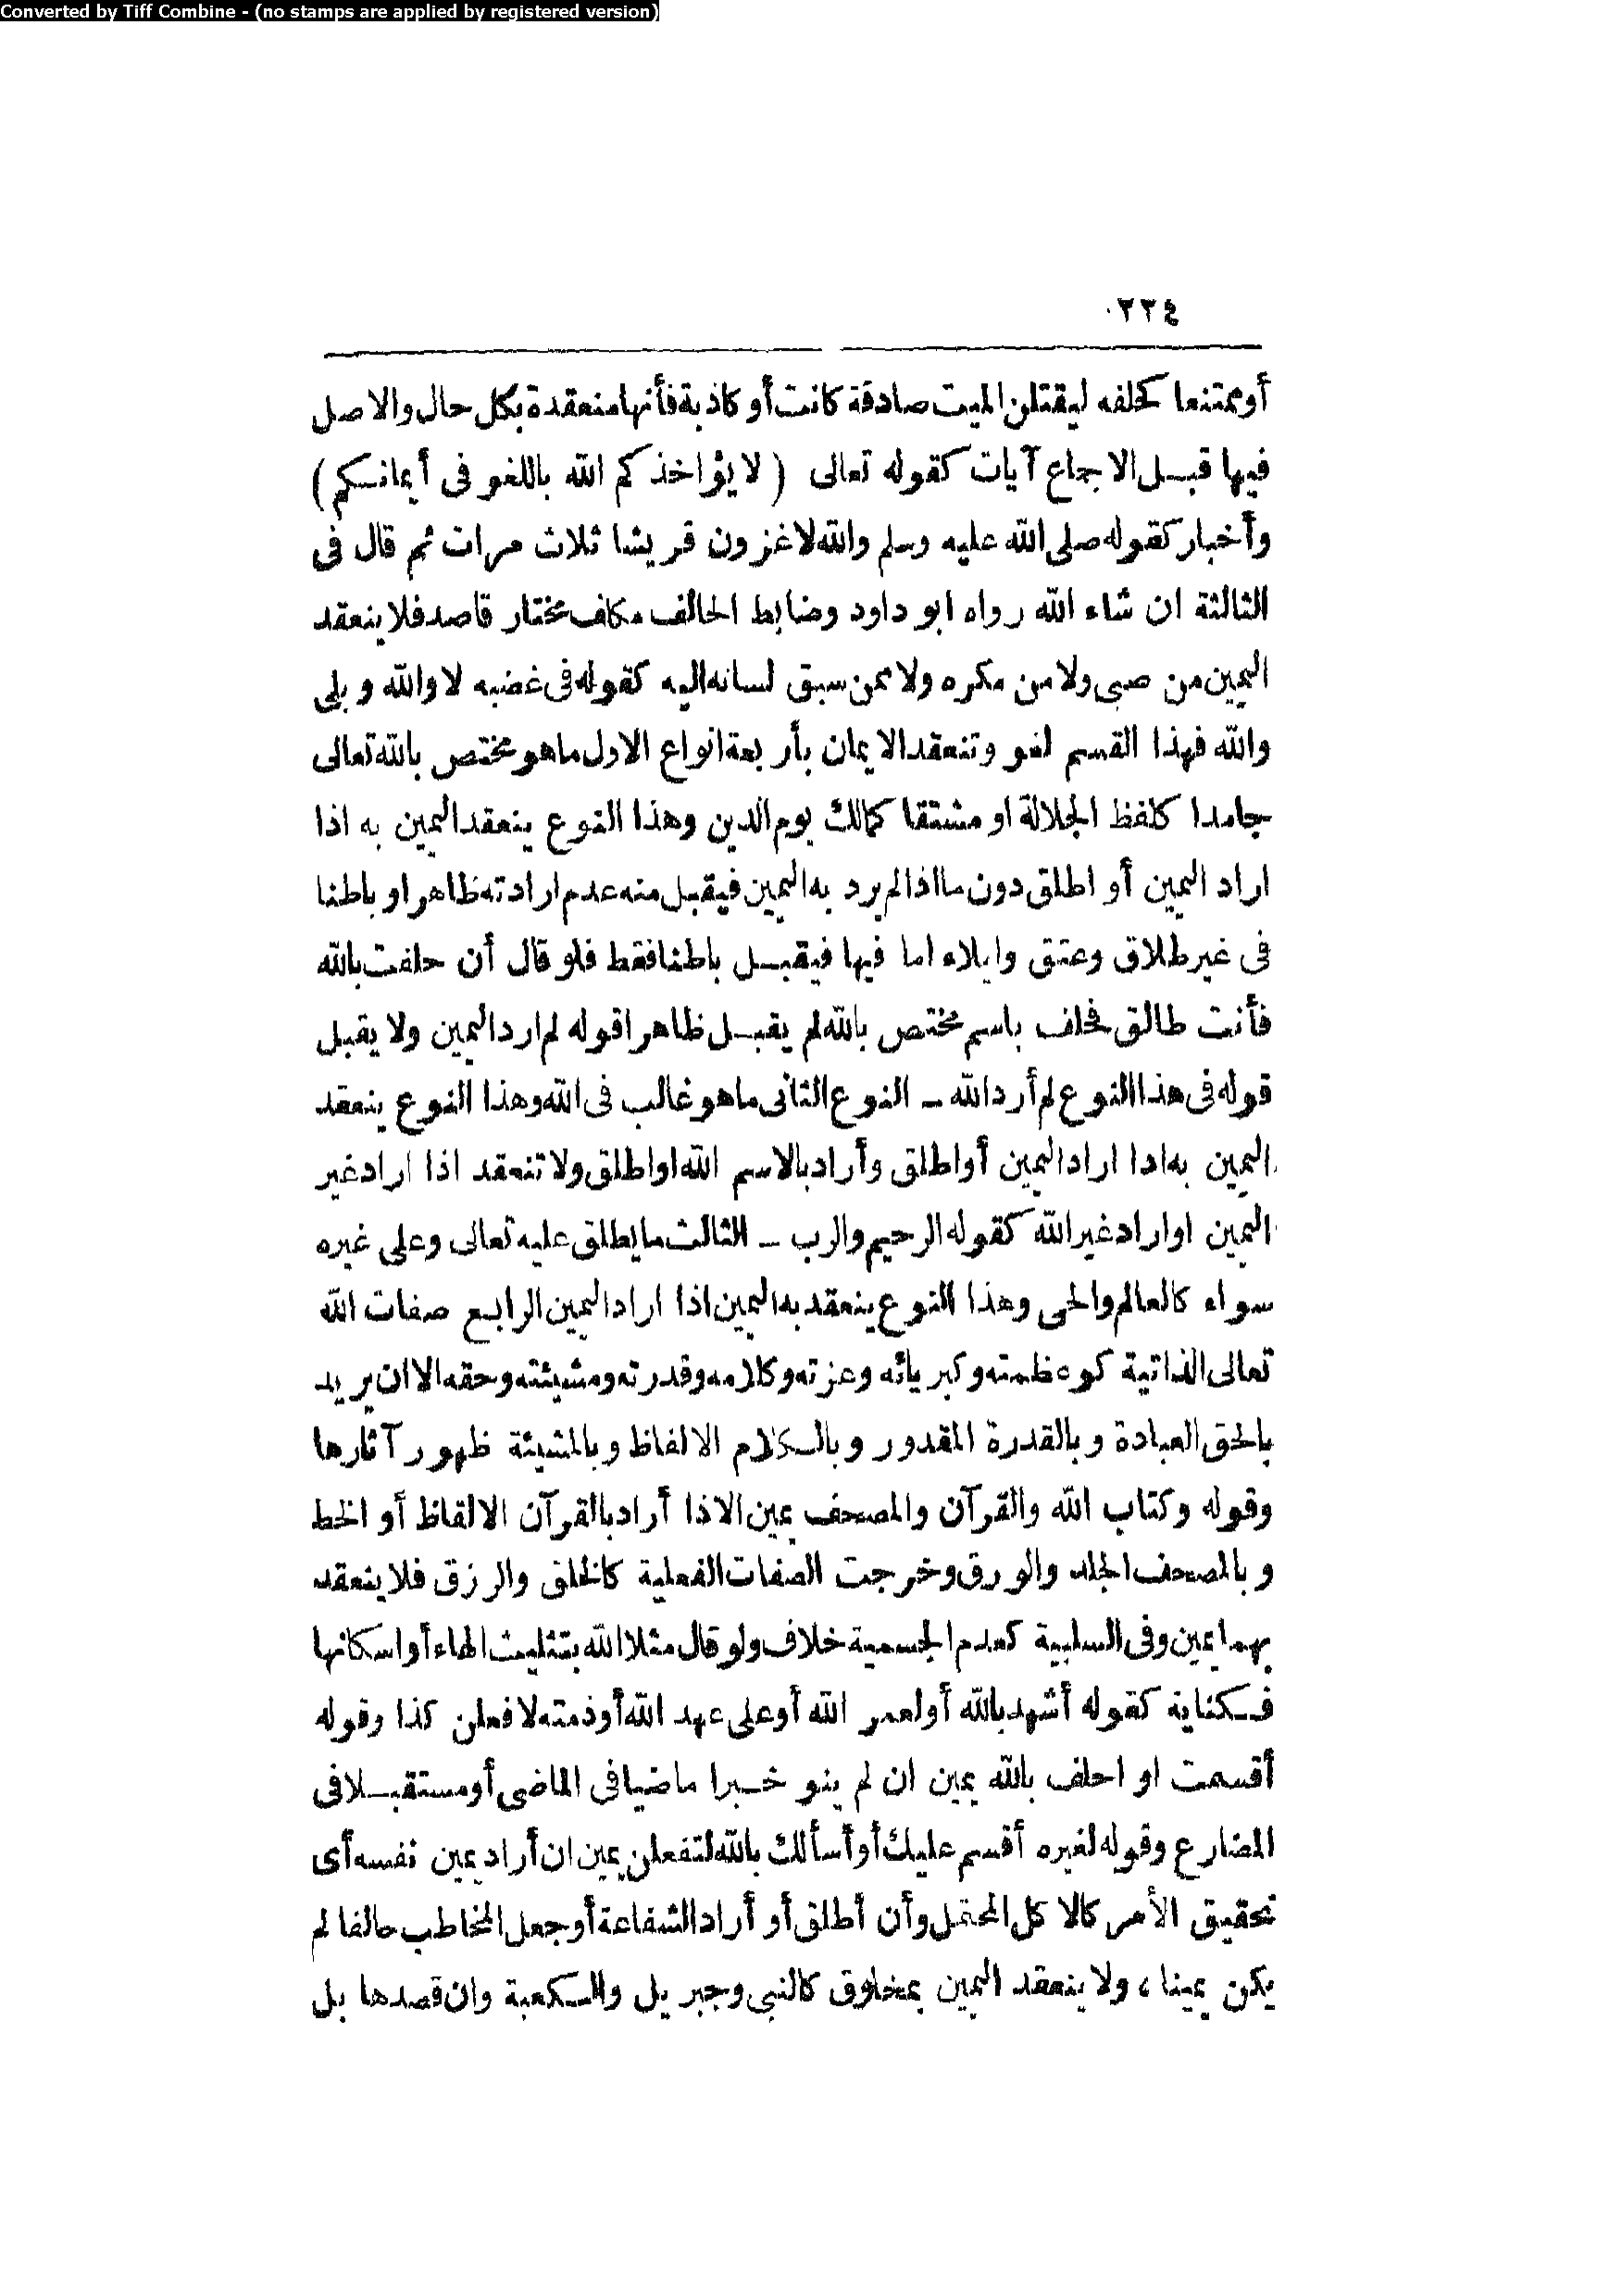 Converted by Tiff Combine - (no stamps are applied by registered version)
٢٢٤
أوممتنعا كحلفه ليقتلن الميت صادقة كانت أو كاذبة فأنها منعقدة بكل حال والاصل
فيها قبل الاجماع آيات كقوله تعالى (لا يؤاخذكم الله باللغو فى أيمانكم)
وأخبار كقوله صلى الله عليه وسلم والله لاغزون قريشا ثلاث مرات ثم قال فى
الثالثة ان شاء الله رواه ابو داود وضابط الحالف مكلف مختار قاصد فلا ينعقد
اليمين من صبى ولا من مكره ولا ممن سبق لسانه اليه كقوله فى غضبه لا والله وبلى
والله فهذا القسم لغو وتنعقد الايمان بأربعة انواع الاول ما هو مختص بالله تعالى
جامدا كلفظ الجلالة او مشتقا كمالك يوم الدين وهذا النوع ينعقد اليمين به اذا
اراد اليمين أو اطلق دون ما اذا لم يرد به اليمين فيقبل منه عدم ارادته ظاهر او باطنا
فى غير طلاق وعتق وايلاء اما فيها فيقبل باطنا فقط فلو قال أن حلفت بالله
فأنت طالق فحلف باسم مختص بالله لم يقبل ظاهرا قوله لم ارد اليمين ولا يقبل
قوله فى هذا النوع لم أرد الله ــ النوع الثانى ما هو غالب فى الله وهذا النوع ينعقد
اليمين به اذا اراد اليمين أو اطلق وأراد بالاسم الله او اطلق ولا تنعقد اذا اراد غير
اليمين او اراد غير الله كقوله الرحيم والرب ــ الثالث ما يطلق عليه تعالى وعلى غيره
سواء كالعالم والحى وهذا النوع ينعقد به اليمين اذا اراد اليمين الرابع صفات الله
تعالى الذاتية كوعظمته وكبريائه وعزته وكلامه وقدرته ومشيئته وحقه الا ان يريد
بالحق العبادة وبالقدرة المقدور وبالكلام الالفاظ وبالمشيئة ظهور آثارها
وقوله وكتاب الله والقرآن والمصحف يمين الا اذا أراد بالقرآن الالفاظ أو الخط
وبالمصحف الجلد والورق وخرجت الصفات الفعلية كالخلق والرزق فلا ينعقد
بهما يمين وفى السلبية كعدم الجسمية خلاف ولو قال مثلا الله بتثليث الهاء أو اسكانها
فكناية كقوله أشهد بالله أو لعمر الله أو على عهد الله أو ذمته لا فعلن كذا وقوله
أقسمت او احلف بالله يمين ان لم ينو خبرا ماضيا فى الماضى أو مستقبلا فى
المضارع وقوله لغيره أقسم عليك أو أسألك بالله لتفعلن يمين ان أراد يمين نفسه أى
تحقيق الأمر كالا كل المحتمل وأن أطلق أو أراد الشفاعة أو جعل المخاطب حالفا لم
يكن يمينا، ولا ينعقد اليمين بمخلوق كالنبى وجبريل والكعبة وان قصدها بل